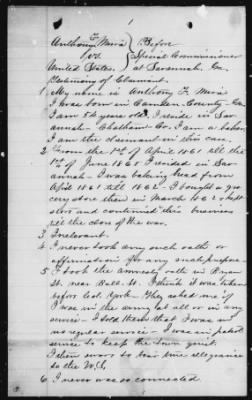 1
Anthony F. Meva } Before
vs } Special Commissioner
United States } at Savannah, Ga.
Testimony of Claimant.
1 My name is Anthony F. Meva
I was born in Camden County Ga
I am 54 years old. I reside in Sav
annah - Chatham Co. I am a baker
I am the claimant in this case.
2 From the 1st of April 1861 till the
1st of June 1865 I resided in Sav
annah - I was baking bread from
April 1861 till 1862 - I bought a gro
cery store then in March 1862 & kept
store and continued this business
till the close of the war.
3 Irrelevant.
4 I never took any such oath or
affirmation for any such purpose.
5 I took the amnesty oath in Bryan
St. near Bull St. I think it was taken
before Col. York - They asked me if
I was in the army at all or in any
service - I told them that I was in
no regular service - I was in patrol
service to keep the town quiet.
I then swore to bear true allegiance
to the U.S.
6 I never was so connected.